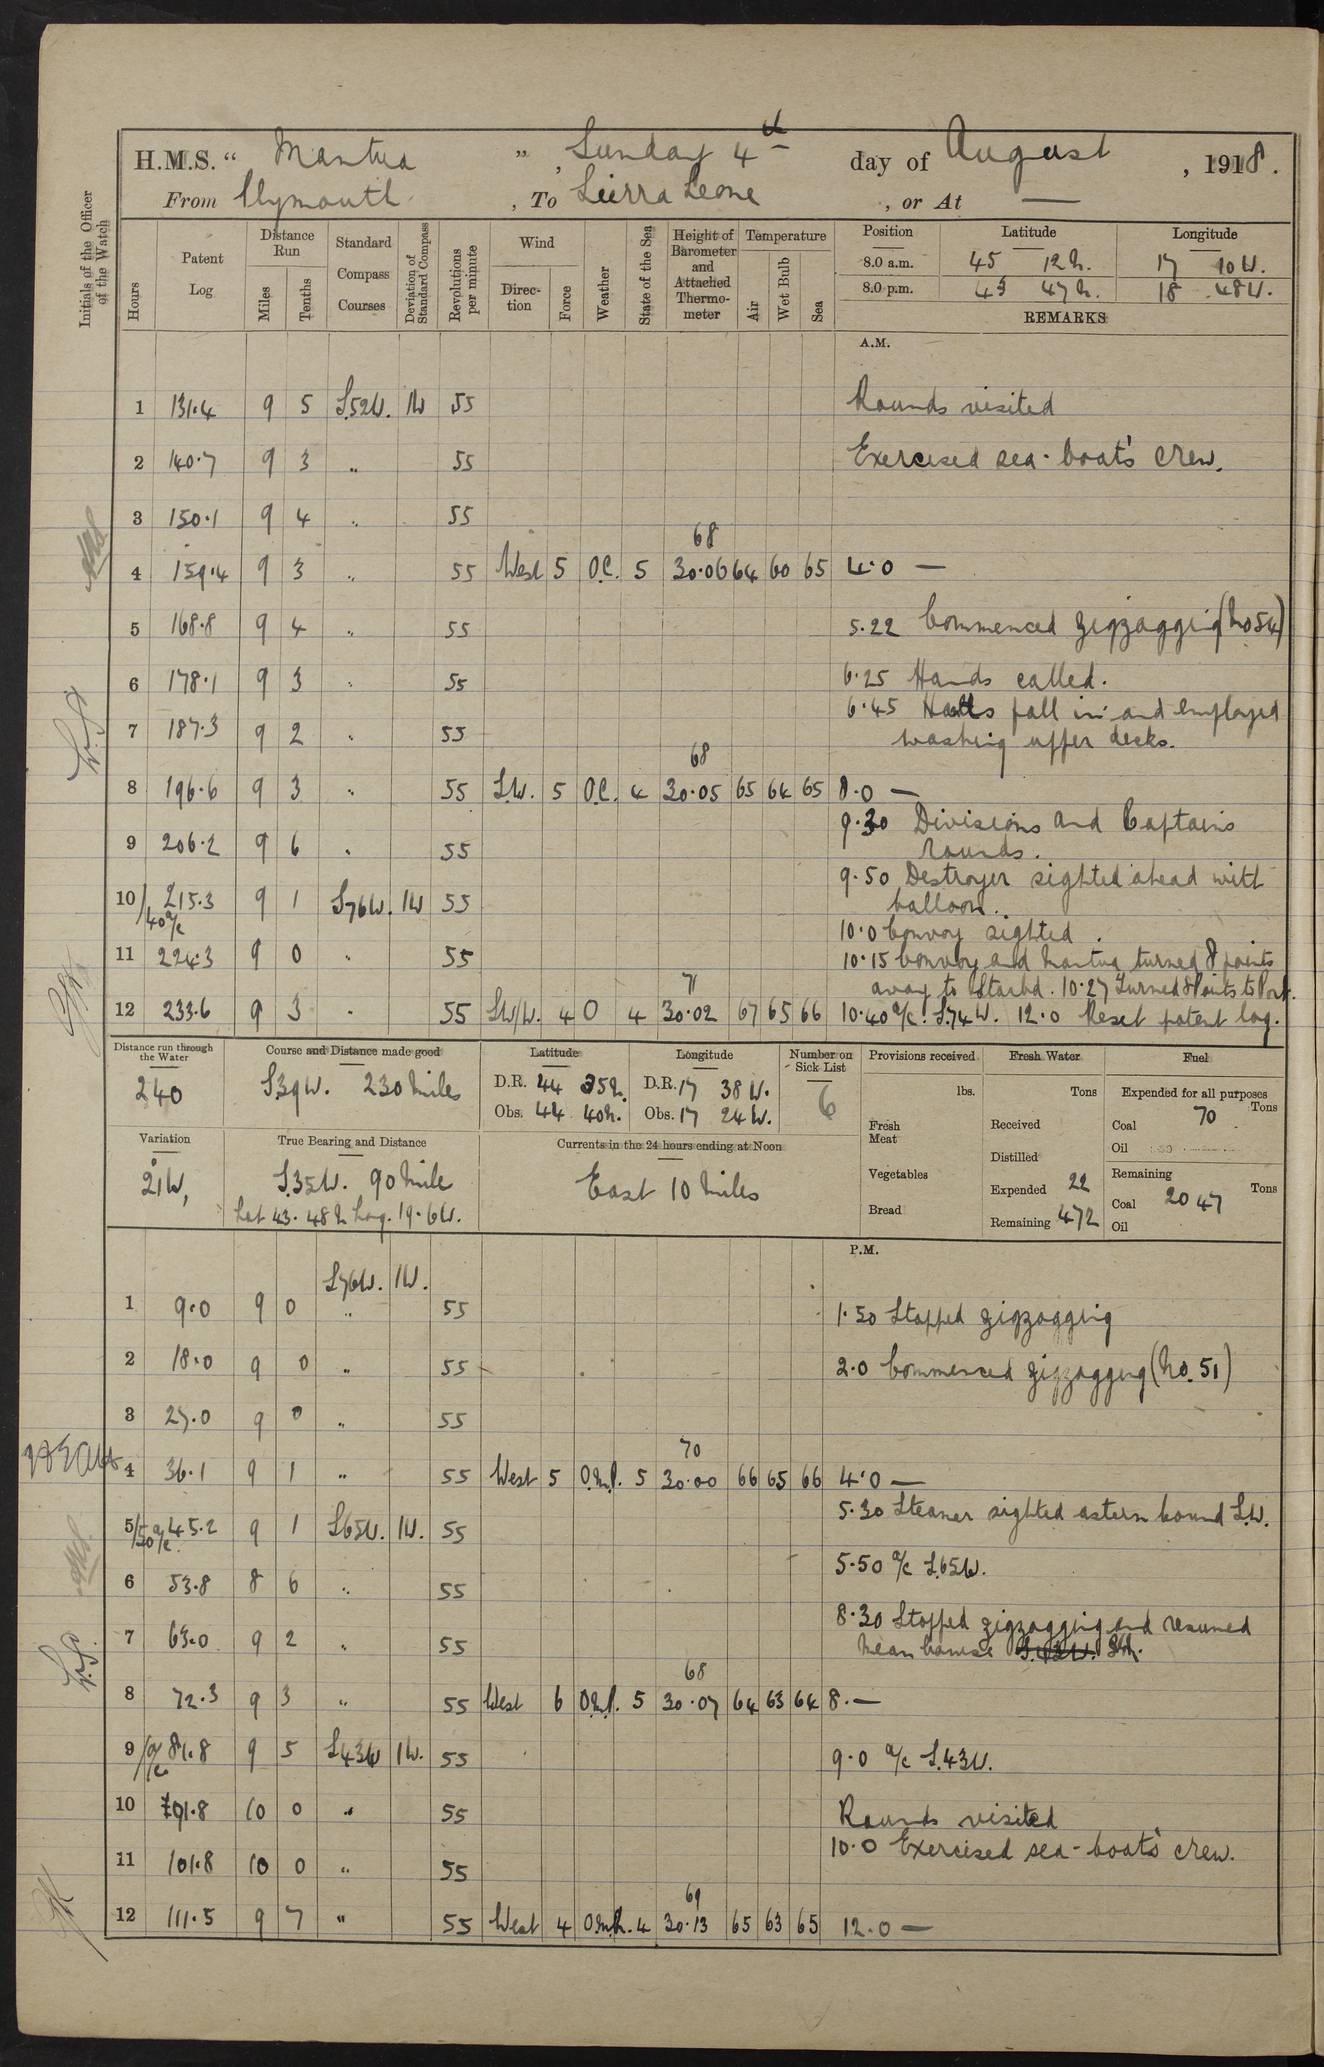 H.M.S. “ Mantua ” , Sunday 4th day of August , 1918.
From Plymouth , To Sierra Leone , or At —
Initials of the Officer of the Watch
Hours Patent Log Distance Run Miles Tenths Standard Compass Courses Deviation of Standard Compass Revolutions per minute Wind Direction Force Weather State of the Sea Height of Barometer and Attached Thermometer Temperature Air Wet Bulb Sea Position Latitude Longitude
8.0 a.m. 45 12 N. 17 10 W.
8.0 p.m. 43 47 N. 18 48 W.
REMARKS
A.M.
1 131.4 9 5 S.52W. 1W 55 Rounds visited
2 140.7 9 3 " 55 Exercised sea-boat's crew.
3 150.1 9 4 " 55
68
4 159.4 9 3 " 55 West 5 O.C. 5 30.06 64 60 65 4.0 —
5 168.8 9 4 " 55 5.22 Commenced zigzagging (No 54)
6 178.1 9 3 " 55 6.25 Hands called.
6.45 Hands fall in and employed
7 187.3 9 2 " 55 washing upper decks.
68
8 196.6 9 3 " 55 S.W. 5 O.C. 4 30.05 65 64 65 8.0 —
9.30 Divisions and Captains
9 206.2 9 6 " 55 rounds.
9.50 Destroyer sighted ahead with
10/40 a/c 215.3 9 1 S76W. 1W 55 balloon.
10.0 Convoy sighted.
11 224.3 9 0 " 55 10.15 Convoy and Mantua turned 8 points
71 away to Starbd. 10.27 Turned 8 Points to Port.
12 233.6 9 3 " 55 SW/W. 4 O 4 30.02 67 65 66 10.40 a/c. S.74W. 12.0 Reset patent log.
Distance run through the Water Course and Distance made good Latitude Longitude Number on Sick List Provisions received Fresh Water Fuel
240 S39W. 230 Miles D.R. 44 35N. D.R. 17 38 W. 6 lbs. Tons Expended for all purposes
Obs. 44 40N. Obs. 17 24 W. Fresh Meat Received Coal 70 Tons
Variation True Bearing and Distance Currents in the 24 hours ending at Noon Distilled Oil
21W, S.35W. 90 Mile East 10 Miles Vegetables Expended 22 Remaining Tons
Lat 43. 48 N Long. 19. 6W. Bread Remaining 472 Coal 2047
Oil
P.M.
S76W. 1W.
1 9.0 9 0 " 55 1.50 Stopped zigzagging
2 18.0 9 0 " 55 2.0 Commenced zigzagging (No. 51)
3 27.0 9 0 " 55
70
4 36.1 9 1 " 55 West 5 5 30.00 66 65 66 4.0 —
5.30 Steamer sighted astern bound S.W.
5/50 a/c 45.2 9 1 S65W. 1W. 55
5.50 a/c S.65W.
6 53.8 8 6 " 55
8.30 Stopped zigzagging and resumed
7 63.0 9 2 " 55 Mean course
68
8 72.3 9 3 " 55 West 6 5 30.07 64 63 64 8.—
9/a/c 81.8 9 5 S43W 1W. 55 9.0 a/c S.43W.
10 91.8 10 0 " 55 Rounds visited
10.0 Exercised sea-boat's crew.
11 101.8 10 0 " 55
69
12 111.5 9 7 " 55 West 4 4 30.13 65 63 65 12.0 —